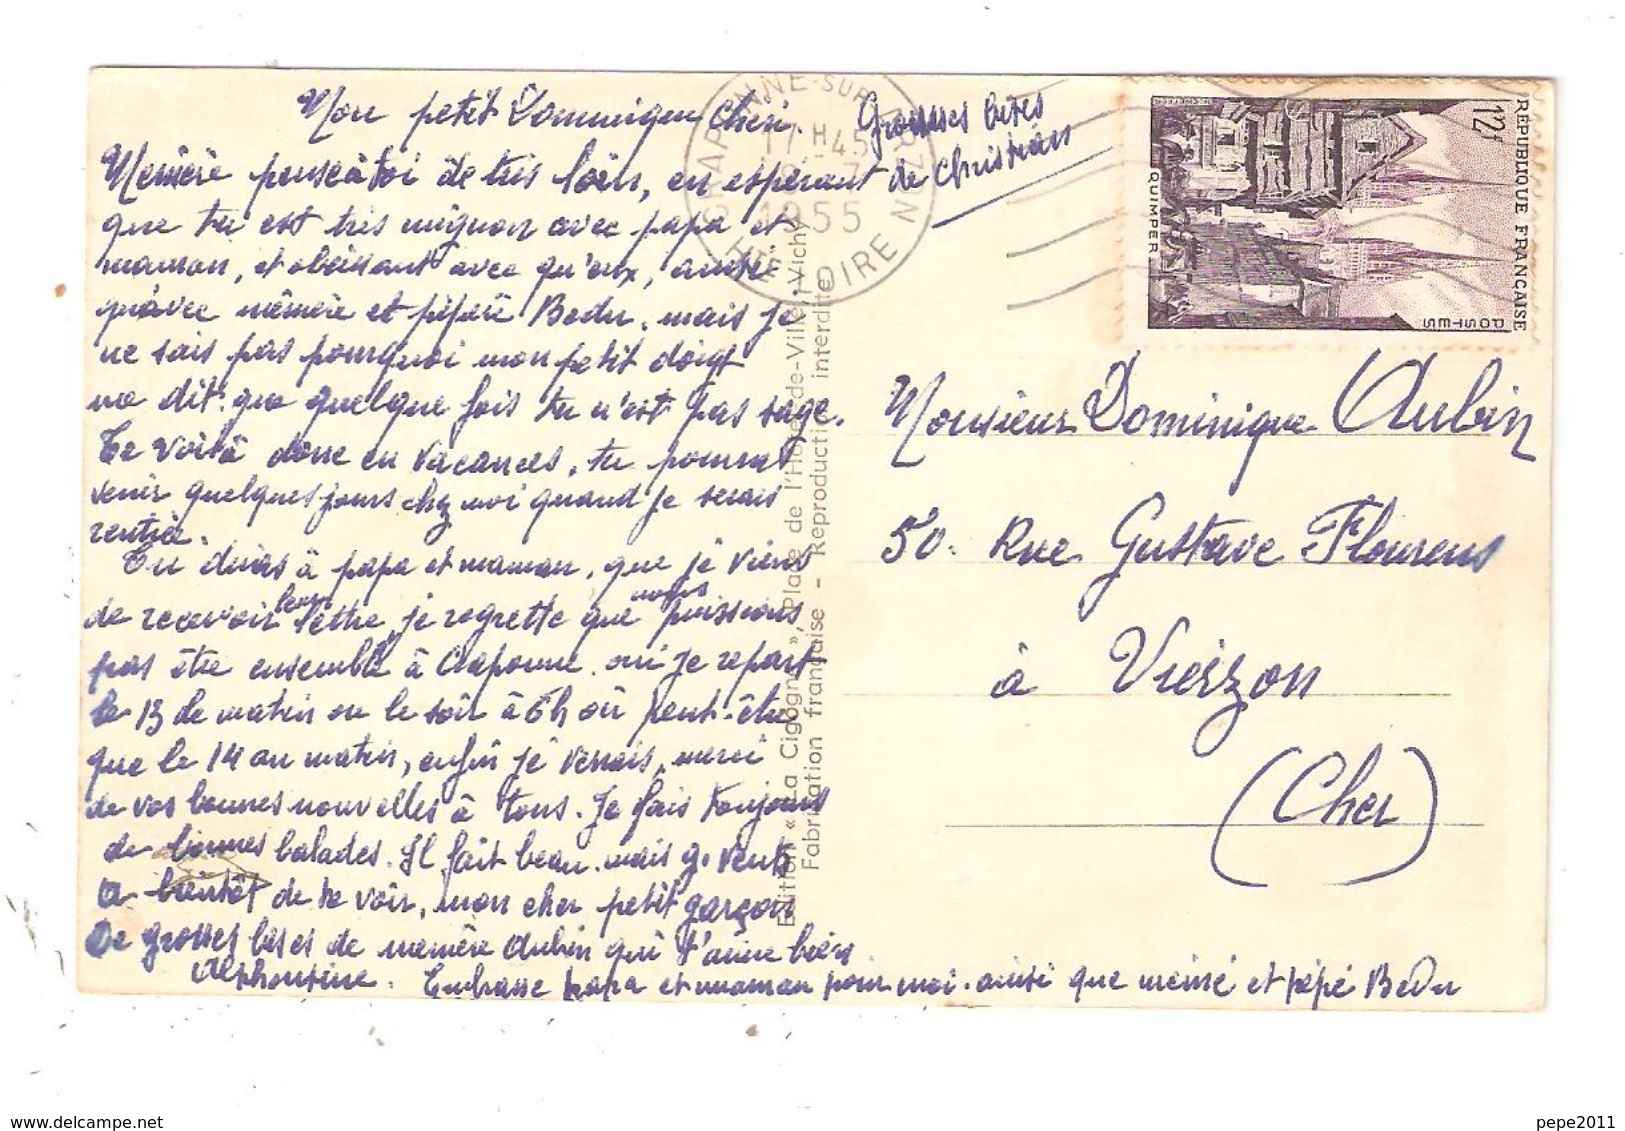 Mon petit Dominique chéri.
Mémère pense à toi de très loin, en espérant
que tu est très mignon avec papa et
maman, et obéissant avec qu'eux, ainsi
qu'avec mémère et pépère Bedu. mais je
ne sais pas pourquoi mon petit doigt
me dit que quelque fois tu n'est pas sage.
Te voilà donc en vacances, tu pourras
venir quelques jours chez moi quand je serais
rentrée.
Tu diras à papa et maman, que je viens
de recevoir leur lettre, je regrette que nous puissions
pas être ensemble à Craponne. oui je repart
le 13 de matin ou le soir à 6h où peut-être
que le 14 au matin, enfin je verrais, merci
de vos bonnes nouvelles à tous. Je fais toujours
de bonnes balades. Il fait beau. mais g. vent
A bientôt de te voir, mon cher petit garçon
De grosses bises de mémère Aubin qui t'aime bien
Alphonsine. Embrasse papa et maman pour moi. ainsi que mémé et pépé Bedu
Grosses bises
de Christian
CRAPONNE-SUR-ARZON
17 H 45
1955
HTE LOIRE
Edition « La Cigogne », Place de l'Hôtel-de-Ville, Vichy
Fabrication française - Reproduction interdite
12f
REPUBLIQUE FRANÇAISE
POSTES
QUIMPER
Monsieur Dominique Aubin
50. Rue Gustave Flourens
à Vierzon
(Cher)
pepe2011